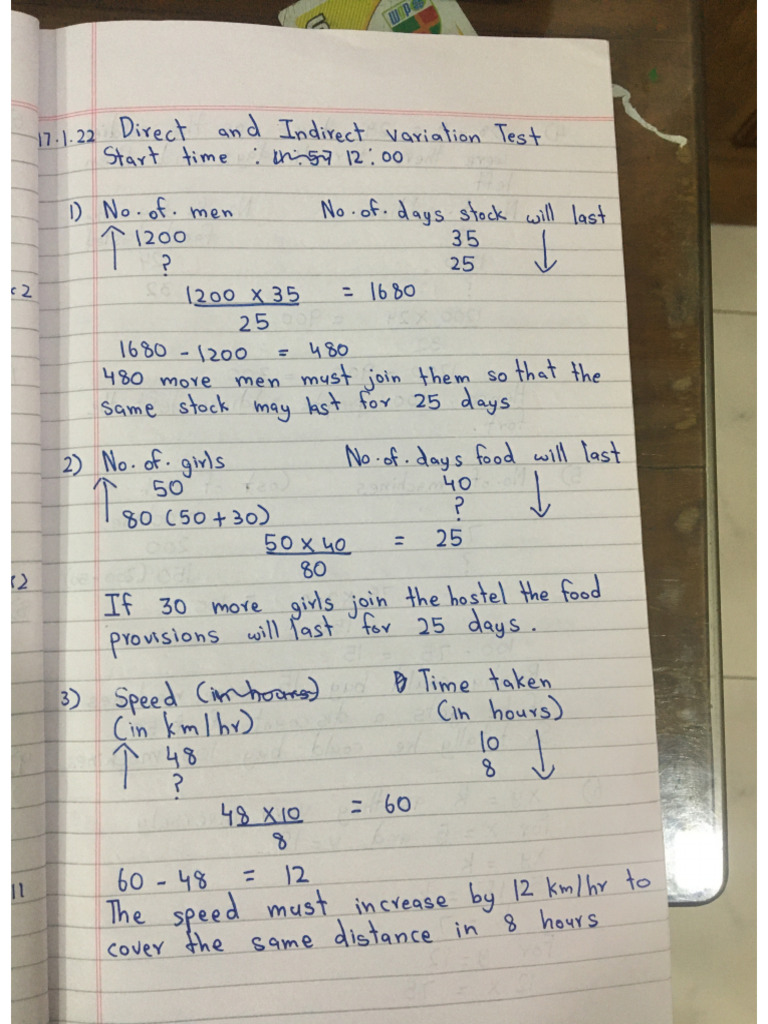 17.1.22 Direct and Indirect variation Test
Start time : 12:00
1) No. of. men No. of. days stock will last
↑ 1200 35 ↓
? 25
1200 x 35 = 1680
25
1680 - 1200 = 480
480 more men must join them so that the
same stock may last for 25 days
2) No. of. girls No. of. days food will last
↑ 50 40 ↓
80 (50+30) ?
50 x 40 = 25
80
If 30 more girls join the hostel the food
provisions will last for 25 days.
3) Speed (in hours) Time taken
(in km/hr) (in hours)
↑ 48 10 ↓
? 8
48 x 10 = 60
8
60 - 48 = 12
The speed must increase by 12 km/hr to
cover the same distance in 8 hours
x2
x2
11